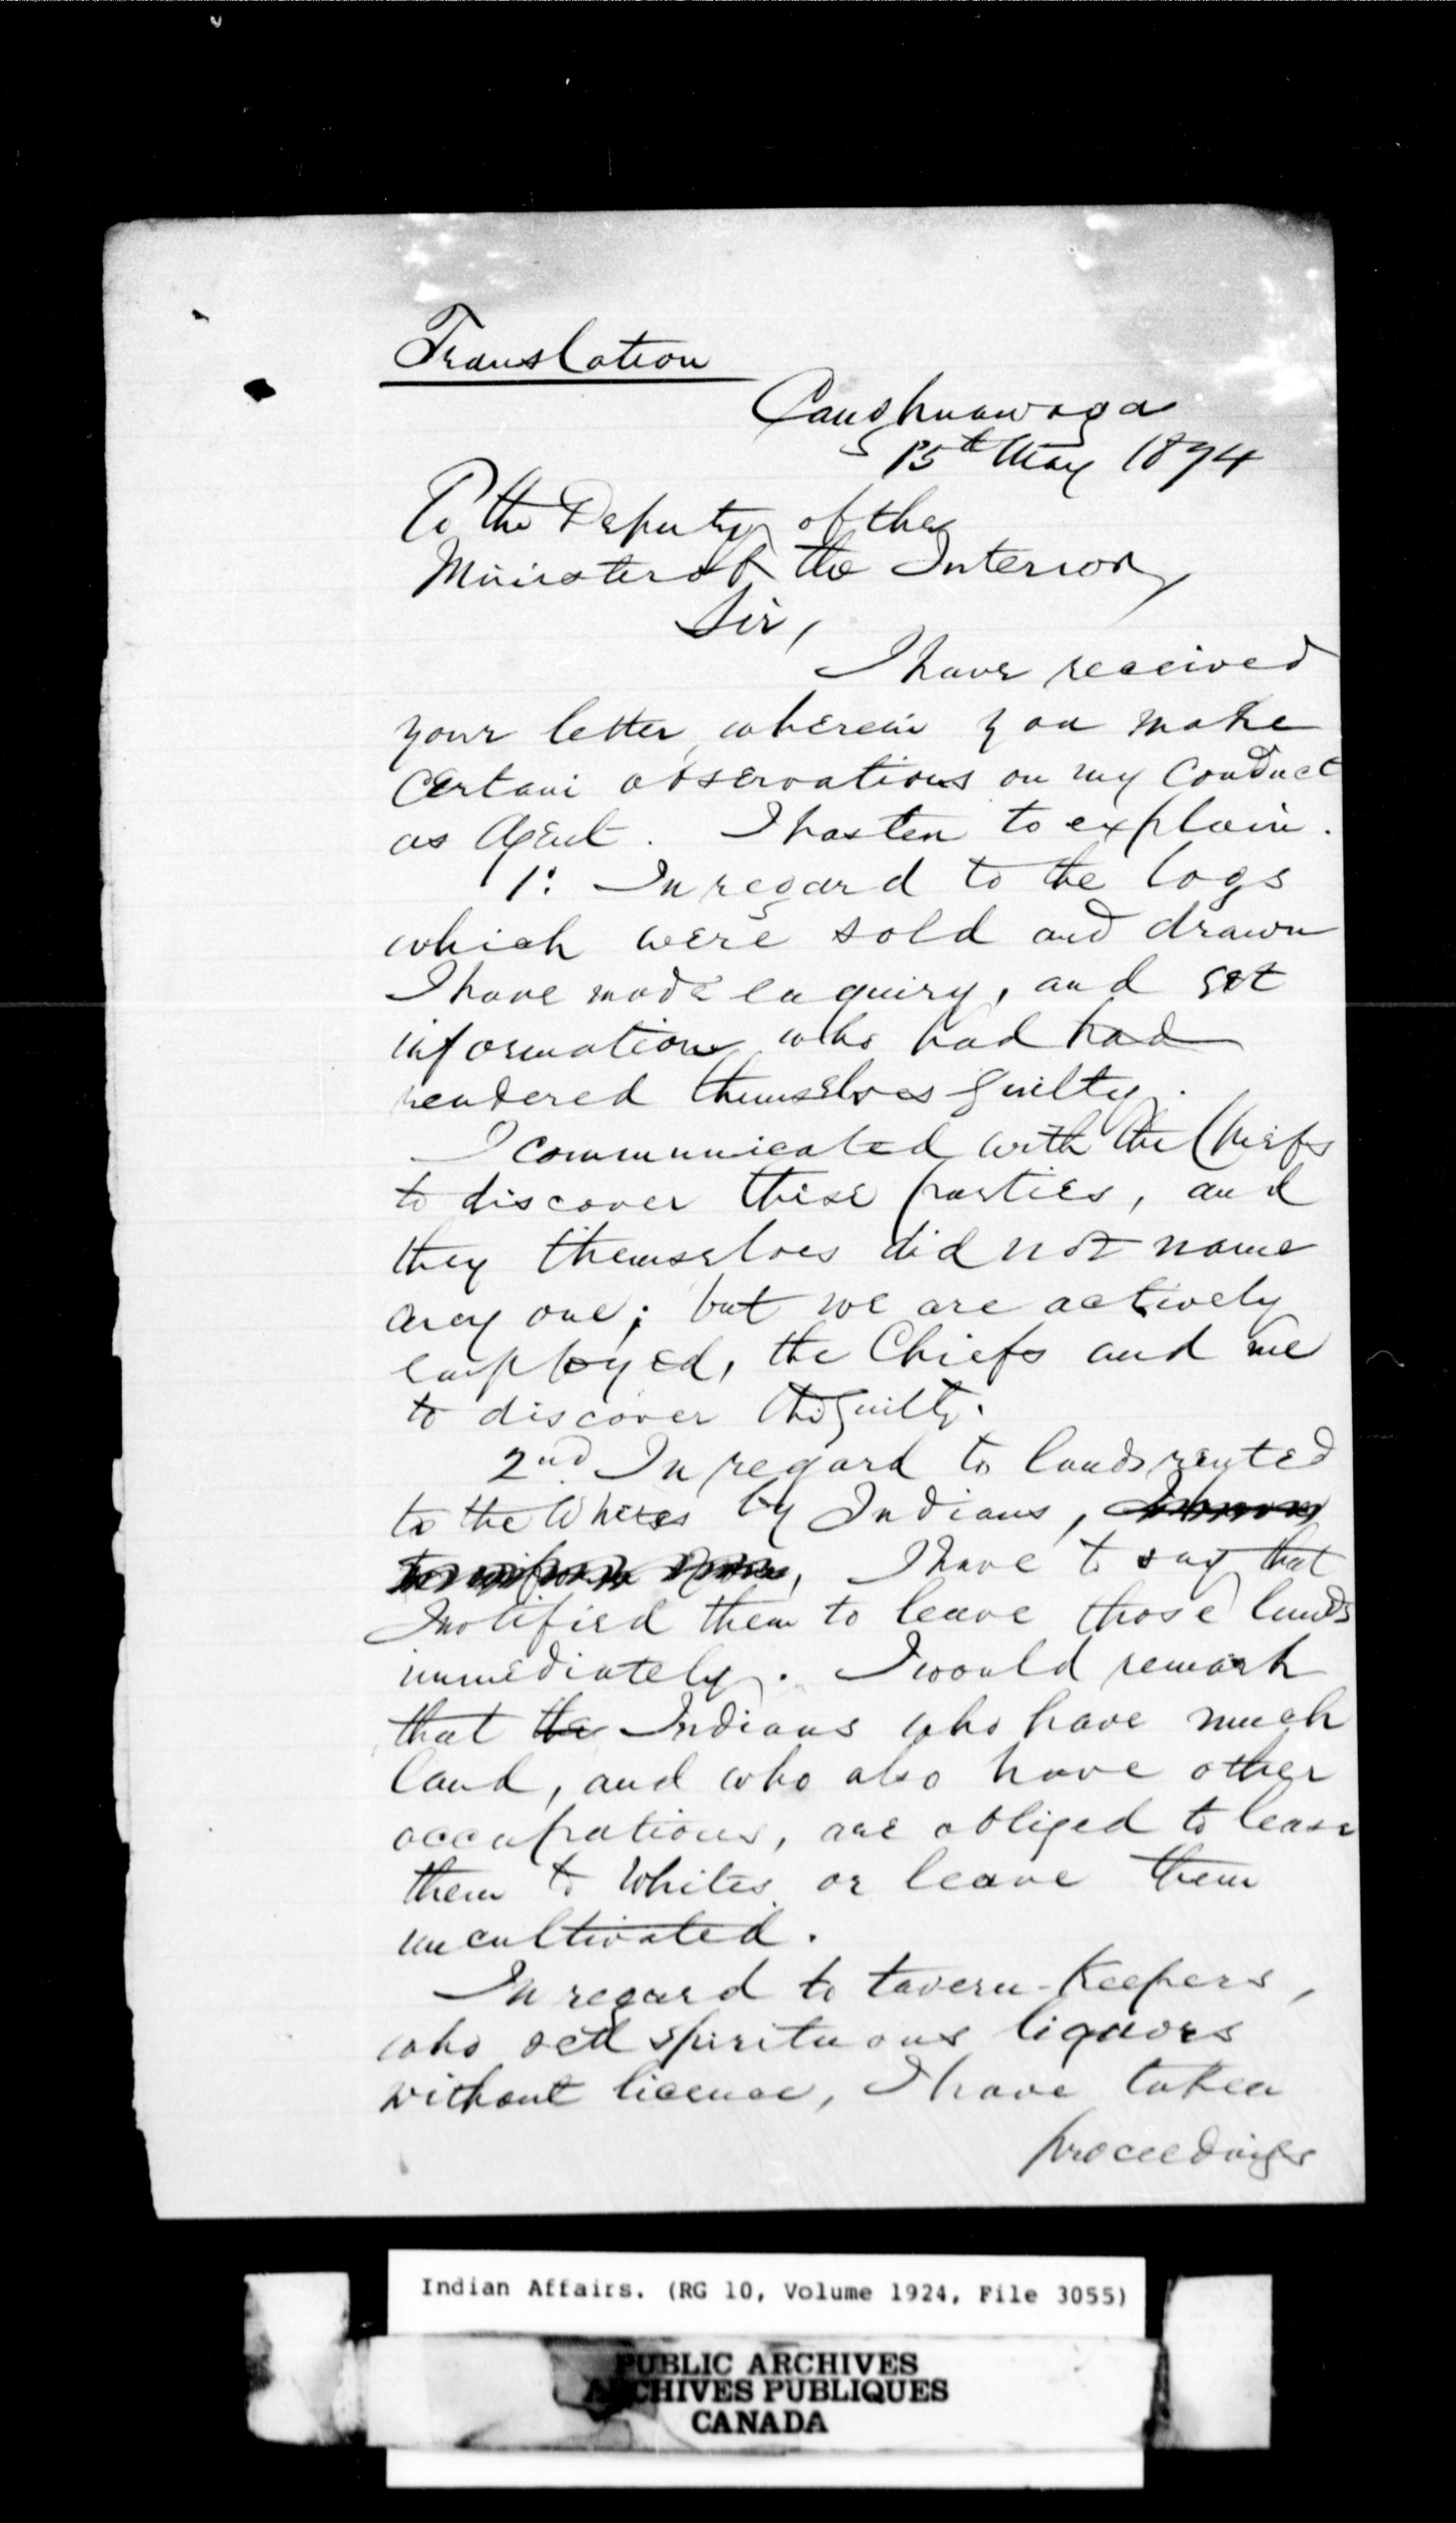 Translation
Caughnawaga
15th May 1874
To the Deputy of the
Minister of the Interior,
Sir,
I have received
your letter, wherein you make
certain observations on my conduct
as Agent. I hasten to explain.
1º. In regard to the logs
which were sold and drawn
I have made enquiry, and got
information who had had
rendered themselves guilty.
I communicated with the Chiefs
to discover these parties, and
they themselves did not name
any one; but we are actively
employed, the Chiefs and me
to discover the guilty.
2nd. In regard to lands rented
to the Whites by Indians,
I have to say that
I notified them to leave those lands
immediately. I would remark
that the Indians who have much
land, and who also have other
occupations, are obliged to lease
them to Whites or leave them
uncultivated.
In regard to tavern-keepers,
who sell spirituous liquors
without licence, I have taken
proceedings
Indian Affairs. (RG 10, Volume 1924, File 3055)
PUBLIC ARCHIVES
ARCHIVES PUBLIQUES
CANADA